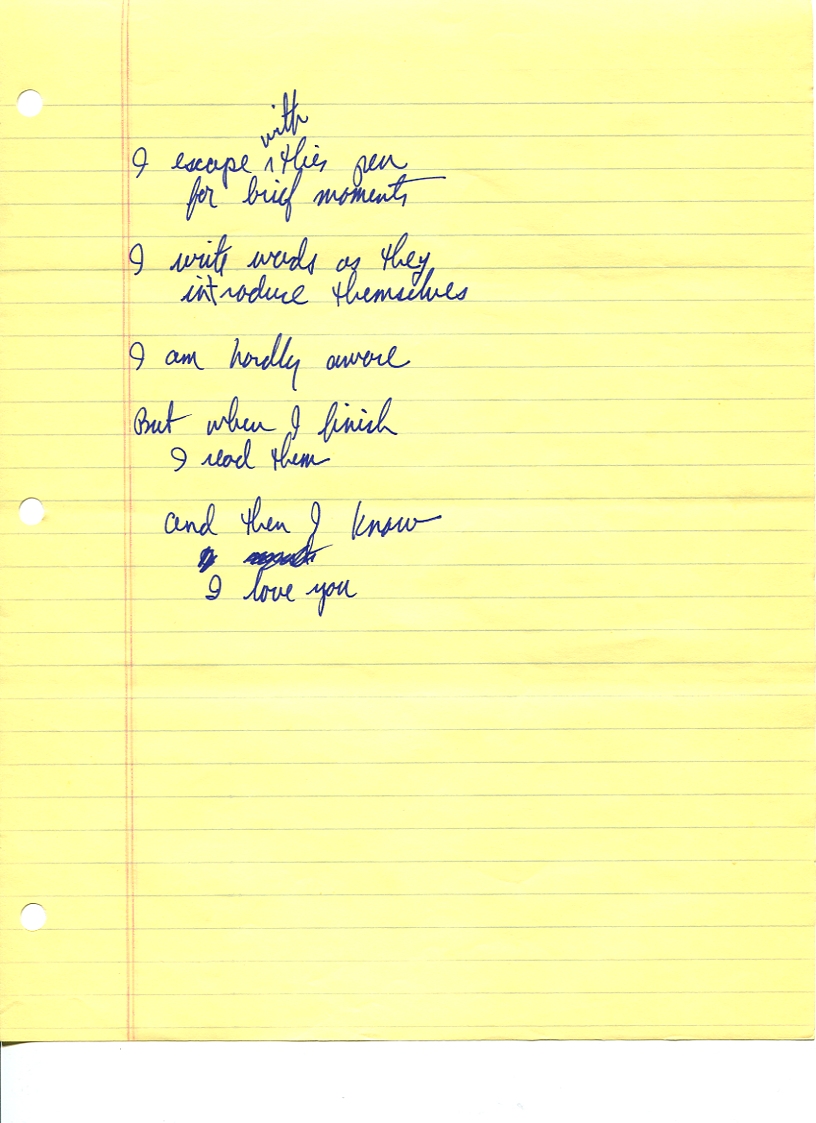 I escape with this pen
for brief moments
I write words as they
introduce themselves
I am hardly aware
But when I finish
I read them
and then I know
I love you